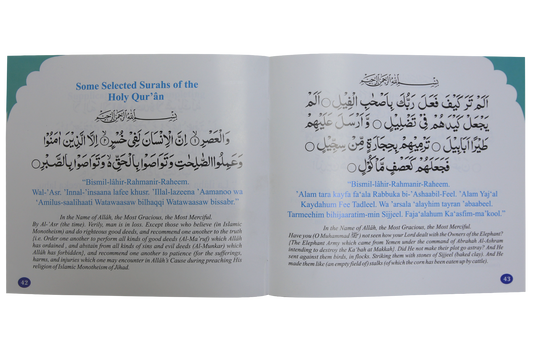 Some Selected Surahs of the
Holy Qur'ân
بِسْمِ اللهِ الرَّحْمٰنِ الرَّحِيْمِ
وَالْعَصْرِ ۝ اِنَّ الْاِنْسَانَ لَفِيْ خُسْرٍ ۝ اِلَّا الَّذِيْنَ اٰمَنُوْا
وَعَمِلُوا الصّٰلِحٰتِ وَتَوَاصَوْا بِالْحَقِّ ۝ وَتَوَاصَوْا بِالصَّبْرِ ۝
"Bismil-lâhir-Rahmanir-Raheem.
Wal-'Asr. 'Innal-'insaana lafee khusr. 'Illal-lazeena 'Aamanoo wa
'Amilus-saalihaati Watawaasaw bilhaqqi Watawaasaw bissabr."
In the Name of Allâh, the Most Gracious, the Most Merciful.
By Al-'Asr (the time). Verily, man is in loss. Except those who believe (in Islamic
Monotheism) and do righteous good deeds, and recommend one another to the truth
[i.e. Order one another to perform all kinds of good deeds (Al-Ma'ruf) which Allâh
has ordained , and abstain from all kinds of sins and evil deeds (Al-Munkar) which
Allâh has forbidden], and recommend one another to patience (for the sufferings,
harms, and injuries which one may encounter in Allâh's Cause during preaching His
religion of Islamic Monotheism of Jihad.
42
بِسْمِ اللهِ الرَّحْمٰنِ الرَّحِيْمِ
اَلَمْ تَرَ كَيْفَ فَعَلَ رَبُّكَ بِاَصْحٰبِ الْفِيْلِ ۝ اَلَمْ
يَجْعَلْ كَيْدَهُمْ فِيْ تَضْلِيْلٍ ۝ وَّاَرْسَلَ عَلَيْهِمْ
طَيْرًا اَبَابِيْلَ ۝ تَرْمِيْهِمْ بِحِجَارَةٍ مِّنْ سِجِّيْلٍ ۝
فَجَعَلَهُمْ كَعَصْفٍ مَّاْكُوْلٍ ۝
"Bismil-lâhir-Rahmanir-Raheem.
"Alam tara kayfa fa'ala Rabbuka bi-'Ashaabil-Feel. "Alam Yaj'al
Kaydahum Fee Tadleel. Wa 'arsala 'alayhim tayran 'abaabeel.
Tarmeehim bihijaaratim-min Sijjeel. Faja'alaham Ka'asfim-ma'kool."
In the Name of Allâh, the Most Gracious, the Most Merciful.
Have you (O Muhammad ﷺ) not seen how your Lord dealt with the Owners of the Elephant?
[The Elephant Army which came from Yemen under the command of Abrahah Al-Ashram
intending to destroy the Ka'bah at Makkah]. Did He not make their plot go astray? And He
sent against them birds, in flocks. Striking them with stones of Sijjeel (baked clay). And He
made them like (an empty field of) stalks (of which the corn has been eaten up by cattle).
43